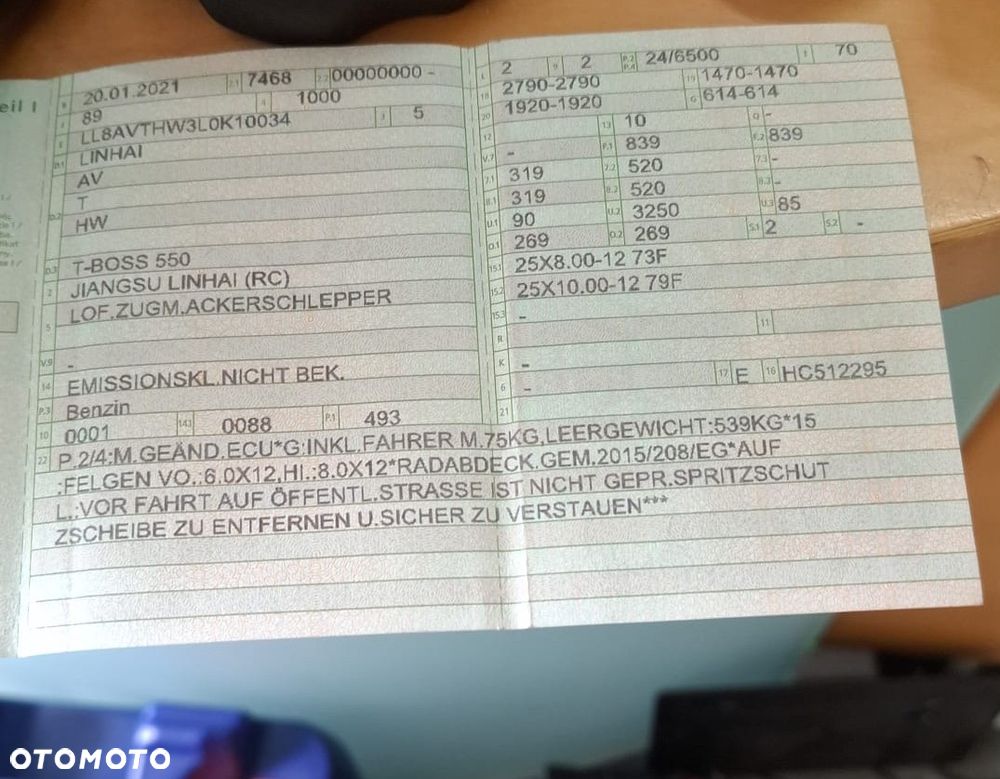 eil I
B 20.01.2021 2.1 7468 2.2 00000000 -
J 89 4 1000
E LL8AVTHW3L0K10034 3 5
D.1 LINHAI
AV
D.2 T
HW
D.3 T-BOSS 550
2 JIANGSU LINHAI (RC)
5 LOF.ZUGM.ACKERSCHLEPPER
V.9 -
14 EMISSIONSKL.NICHT BEK.
P.3 Benzin
10 0001 14.1 0088 P.1 493
L 2 9 2 P.2 P.4 24/6500 T 70
18 2790-2790 19 1470-1470
20 1920-1920 G 614-614
12 - 13 10 Q -
V.7 - F.1 839 F.2 839
7.1 319 7.2 520 7.3 -
8.1 319 8.2 520 8.3 -
U.1 90 U.2 3250 U.3 85
O.1 269 O.2 269 S.1 2 S.2 -
15.1 25X8.00-12 73F
15.2 25X10.00-12 79F
15.3 -
R 11
K -
6 - 17 E 16 HC512295
21
22 P.2/4:M.GEÄND.ECU*G:INKL.FAHRER M.75KG,LEERGEWICHT:539KG*15
:FELGEN VO.:6.0X12,HI.:8.0X12*RADABDECK.GEM.2015/208/EG*AUF
L.:VOR FAHRT AUF ÖFFENTL.STRASSE IST NICHT GEPR.SPRITZSCHUT
ZSCHEIBE ZU ENTFERNEN U.SICHER ZU VERSTAUEN***
OTOMOTO